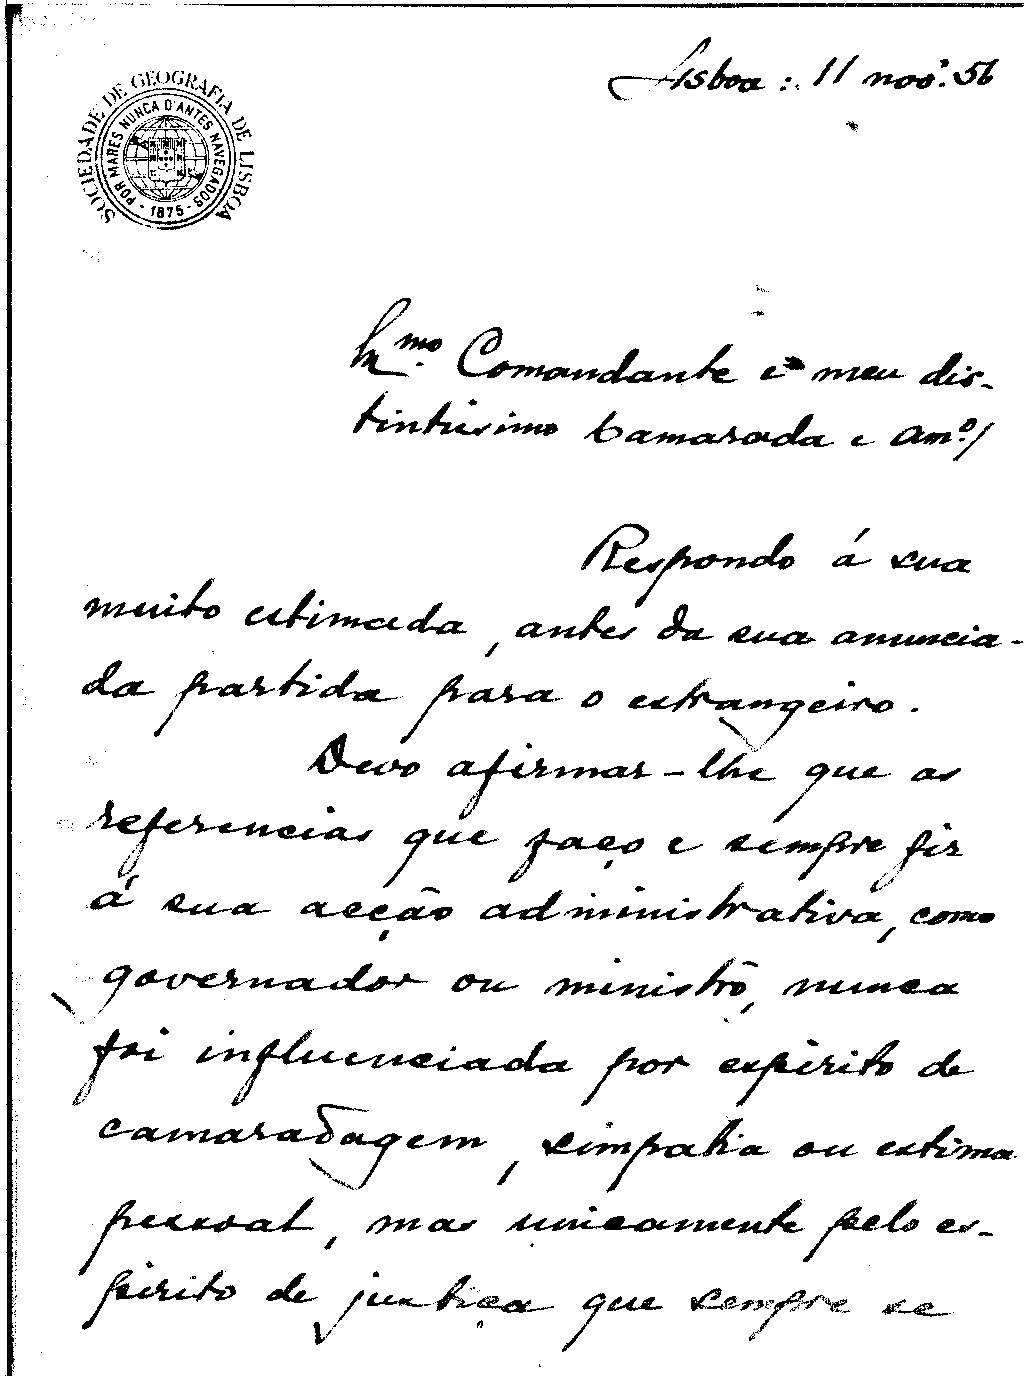 Lisboa: 11 nov.º 56
SOCIEDADE DE GEOGRAFIA DE LISBOA
POR MARES NUNCA D'ANTES NAVEGADOS
- 1875 -
Comandante e meu dis-
tintissimo Camarada e Am.º/
Respondo á sua
muito estimada, antes da sua anuncia-
da partida para o estrangeiro.
Devo afirmar-lhe que as
referencias que faço e sempre fiz
á sua acção administrativa, como
governador ou ministro, nunca
foi influenciada por espirito de
camaradagem, simpatia ou estima
pessoal, mas unicamente pelo es-
pirito de justiça que sempre se